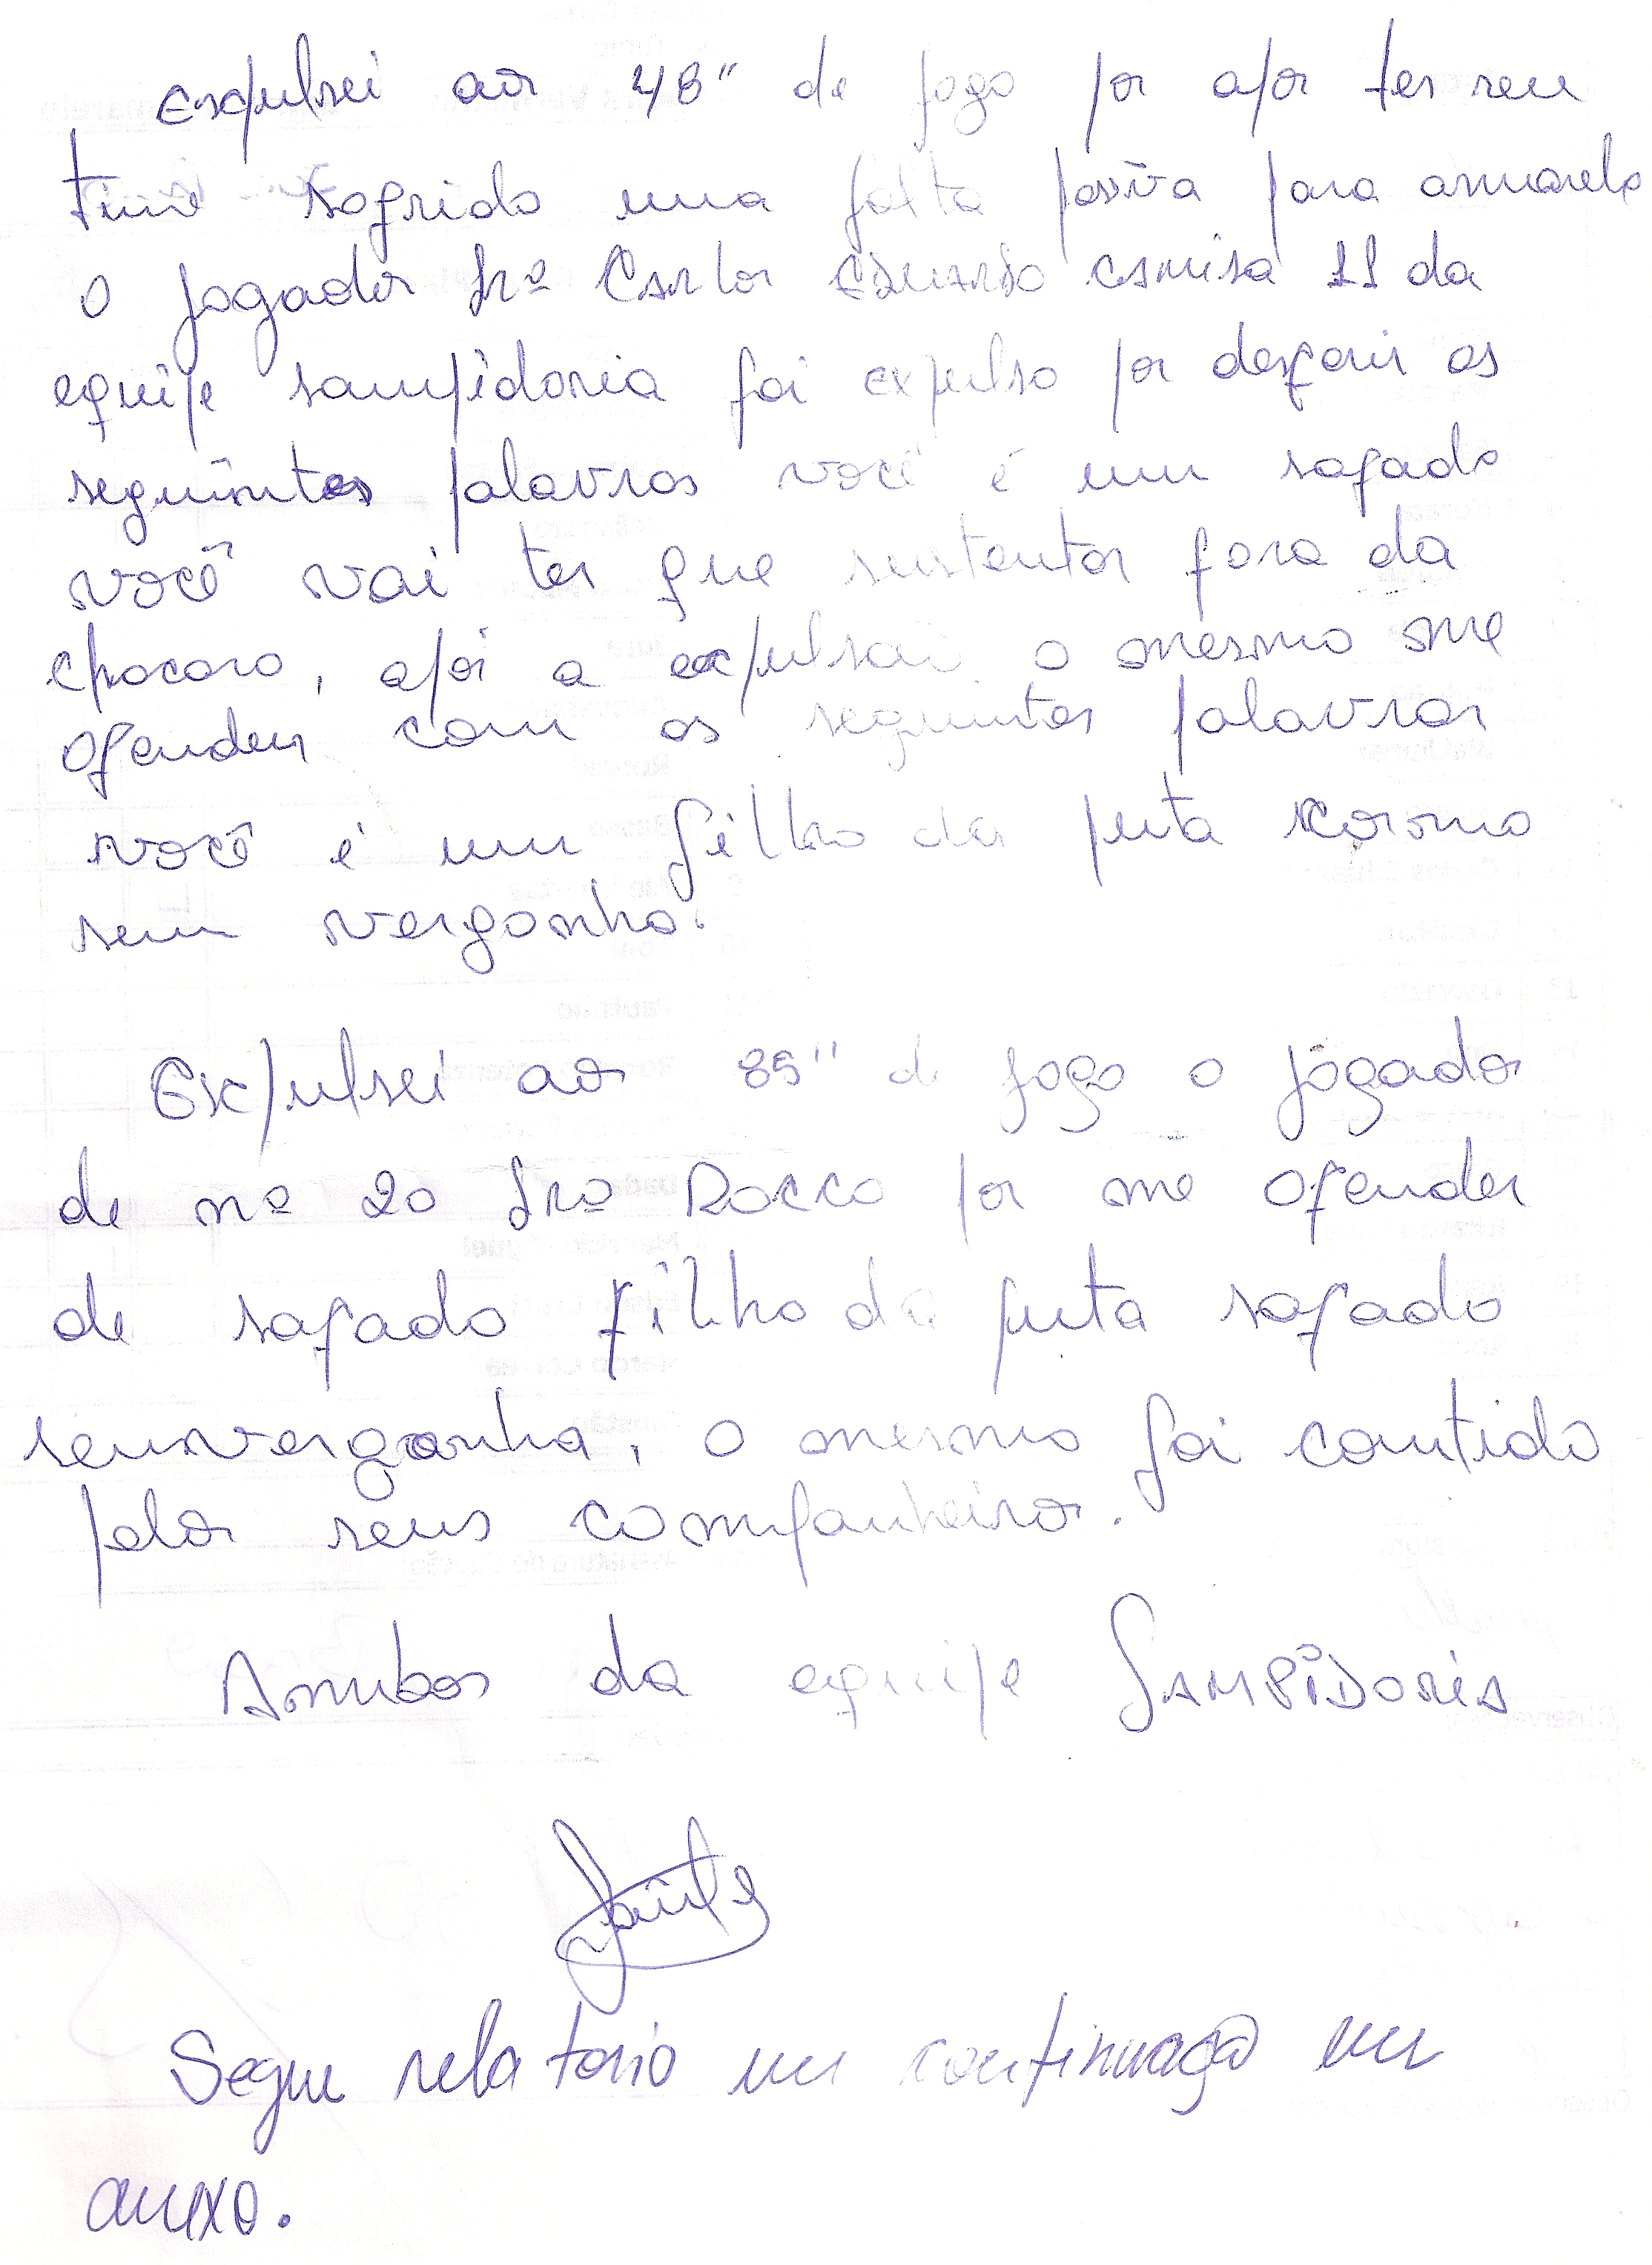 Expulsei aos 48" de jogo por apos ter seu
time sofrido uma falta passiva para amarelo
o jogador Srº Carlos Eduardo camisa 11 da
equipe sampidoria foi expulso por desferir as
seguintes palavras você é um safado
você vai ter que sustentar fora da
, apos a expulsão o mesmo me
ofendeu com as seguintes palavras
você é um filho da puta
sem vergonha.
Expulsei aos 85" de jogo o jogador
de nº 20 Srº Rocco por me ofender
de safado filho da puta safado
semvergonha, o mesmo foi contido
pelos seus companheiros.
Ambos da equipe SAMPIDORIA
Segue relatorio em continuação em
anexo.